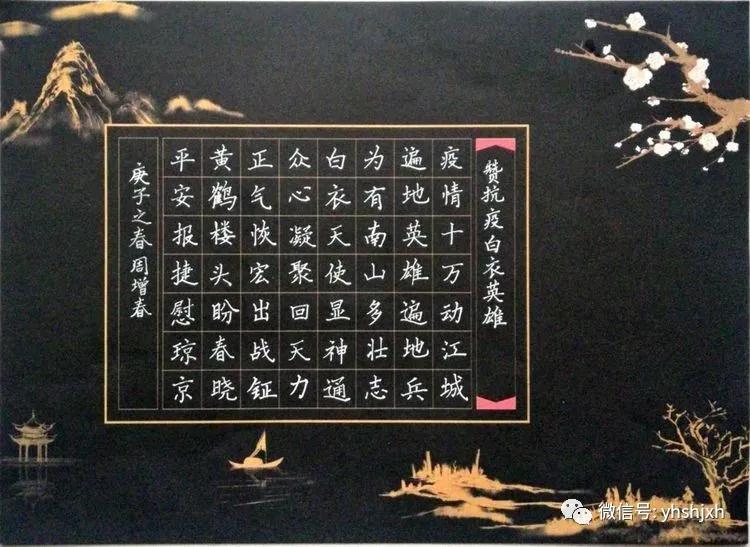 赞抗疫白衣英雄
疫情十万动江城
遍地英雄遍地兵
为有南山多壮志
白衣天使显神通
众心凝聚回天力
正气恢宏出战钲
黄鹤楼头盼春晓
平安报捷慰琼京
庚子之春 周增春
微信号: yhshjxh